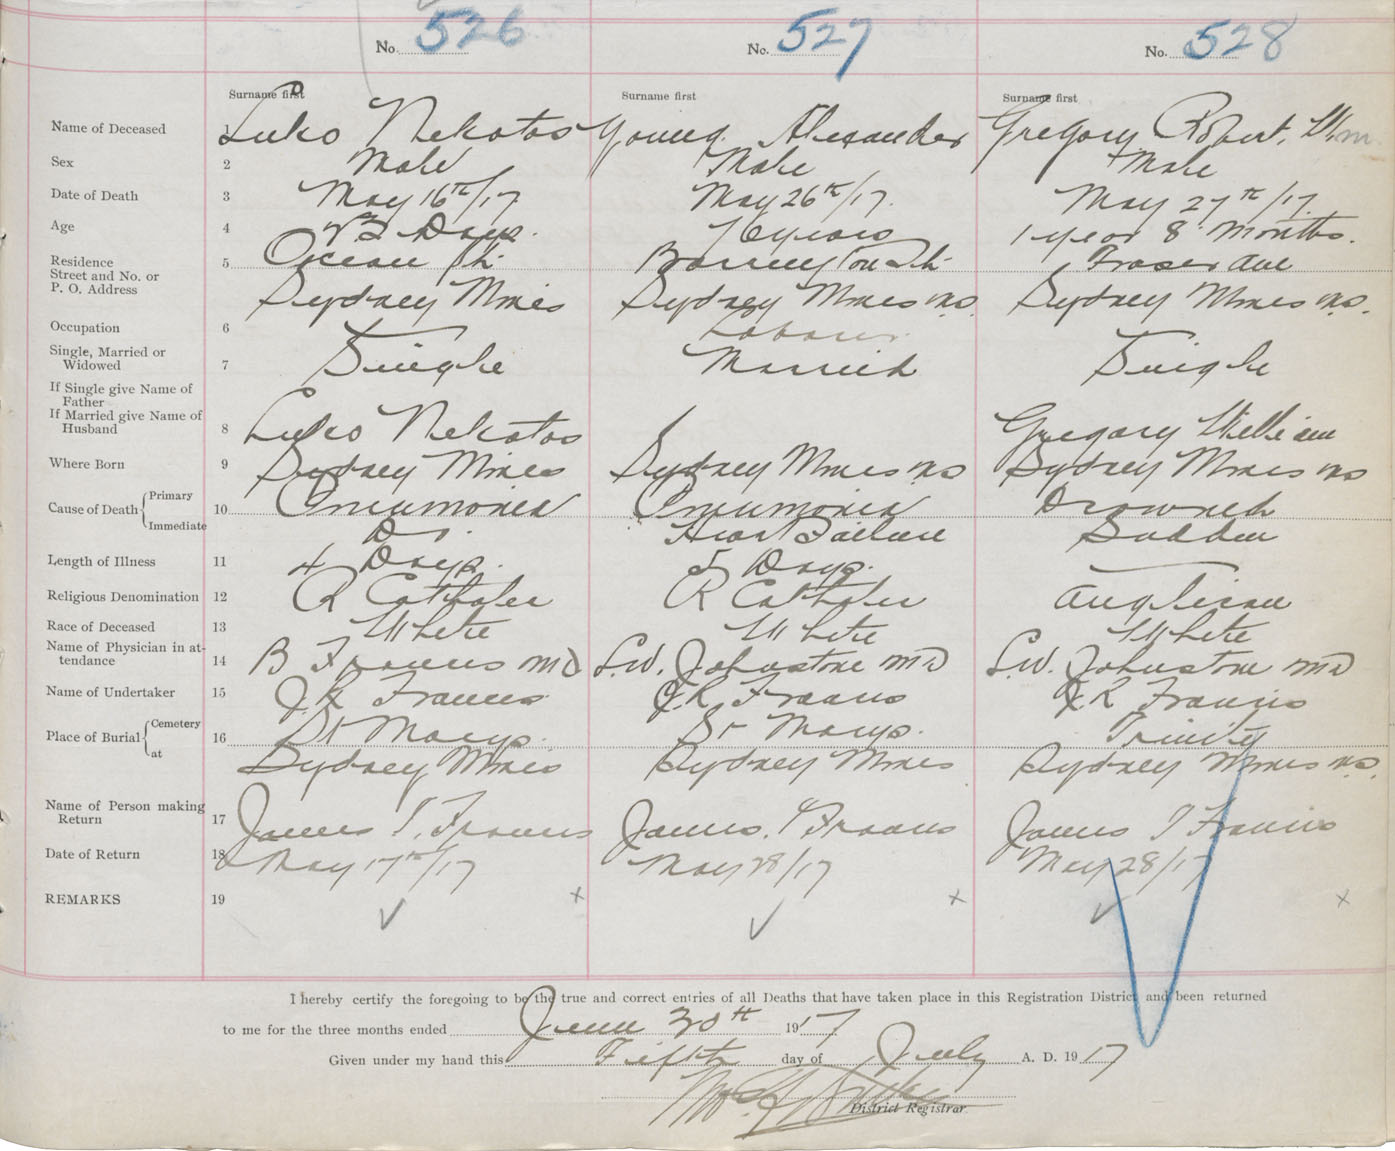 No. 526 No. 527 No. 528
Surname first Surname first Surname first
Name of Deceased 1 Luko Nekotos Young Alexander Gregory Robert, Wm.
Sex 2 Male Male Male
Date of Death 3 May 16th/17 May 26th/17. May 27th/17
Age 4 Days. 76 years 1 year 8 Months.
Residence 5 Ocean St. Barrington St. Fraser Ave
Street and No. or
P. O. Address Sydney Mines Sydney Mines N.S. Sydney Mines N.S.
Occupation 6 Labour
Single, Married or
Widowed 7 Single Married Single
If Single give Name of
Father
If Married give Name of
Husband 8 Luko Nekotos Gregory William
Where Born 9 Sydney Mines Sydney Mines NS Sydney Mines NS
Cause of Death Primary 10 Pneumonia Pneumonia Drowned
Immediate Do. Heart Failure Sudden
Length of Illness 11 4 Days. 5 Days.
Religious Denomination 12 R Catholic R Catholic Anglican
Race of Deceased 13 White White White
Name of Physician in at-
tendance 14 B Francis MD L.W. Johnstone MD L.W. Johnstone MD
Name of Undertaker 15 J.R Francis J.R Francis J R Francis
Place of Burial Cemetery 16 St Marys. St Marys. Trinity
at Sydney Mines Sydney Mines Sydney Mines N.S.
Name of Person making
Return 17 James T. Francis James. T Francis James T Francis
Date of Return 18 May 17th/17 May 28/17 May 28/17
REMARKS 19 x x x
I hereby certify the foregoing to be the true and correct entries of all Deaths that have taken place in this Registration District and been returned
to me for the three months ended June 30th 1917
Given under my hand this Fifth day of July A. D. 1917
District Registrar.